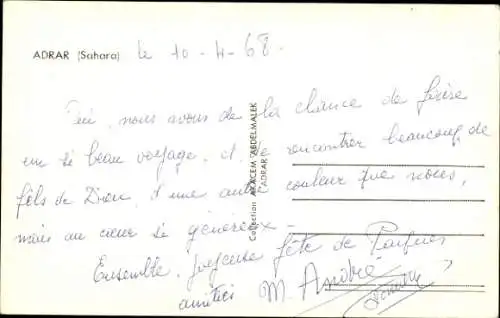 ADRAR (Sahara) le 10-4-68.
Oui, nous avons de la chance de faire
un si beau voyage, et de rencontrer beaucoup de
fils de Dieu, d'une autre couleur que nous,
mais au cœur si généreux.
Ensemble, joyeuse fête de Pâques
amitiés M. André
Collection BELKACEM ABDELMALEK
(ADRAR)